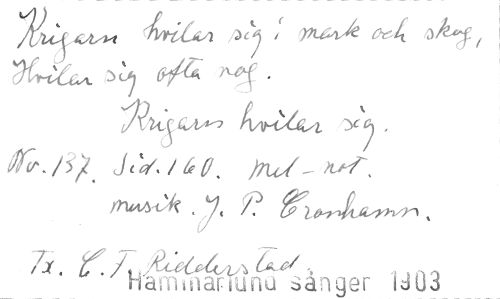 Krigarn hvilar sig i mark och skog,
Hvilar sig ofta nog.
Krigarn hvilar sig.
No. 137. Sid. 160. Mel-not.
musik. J. P. Cronhamn.
Tx. C. F. Ridderstad
Hammarlund sånger 1903